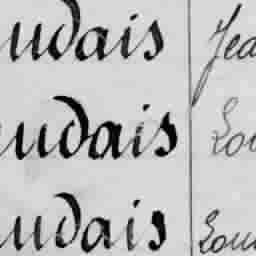 udais Jea
udais Lou
udais Loui